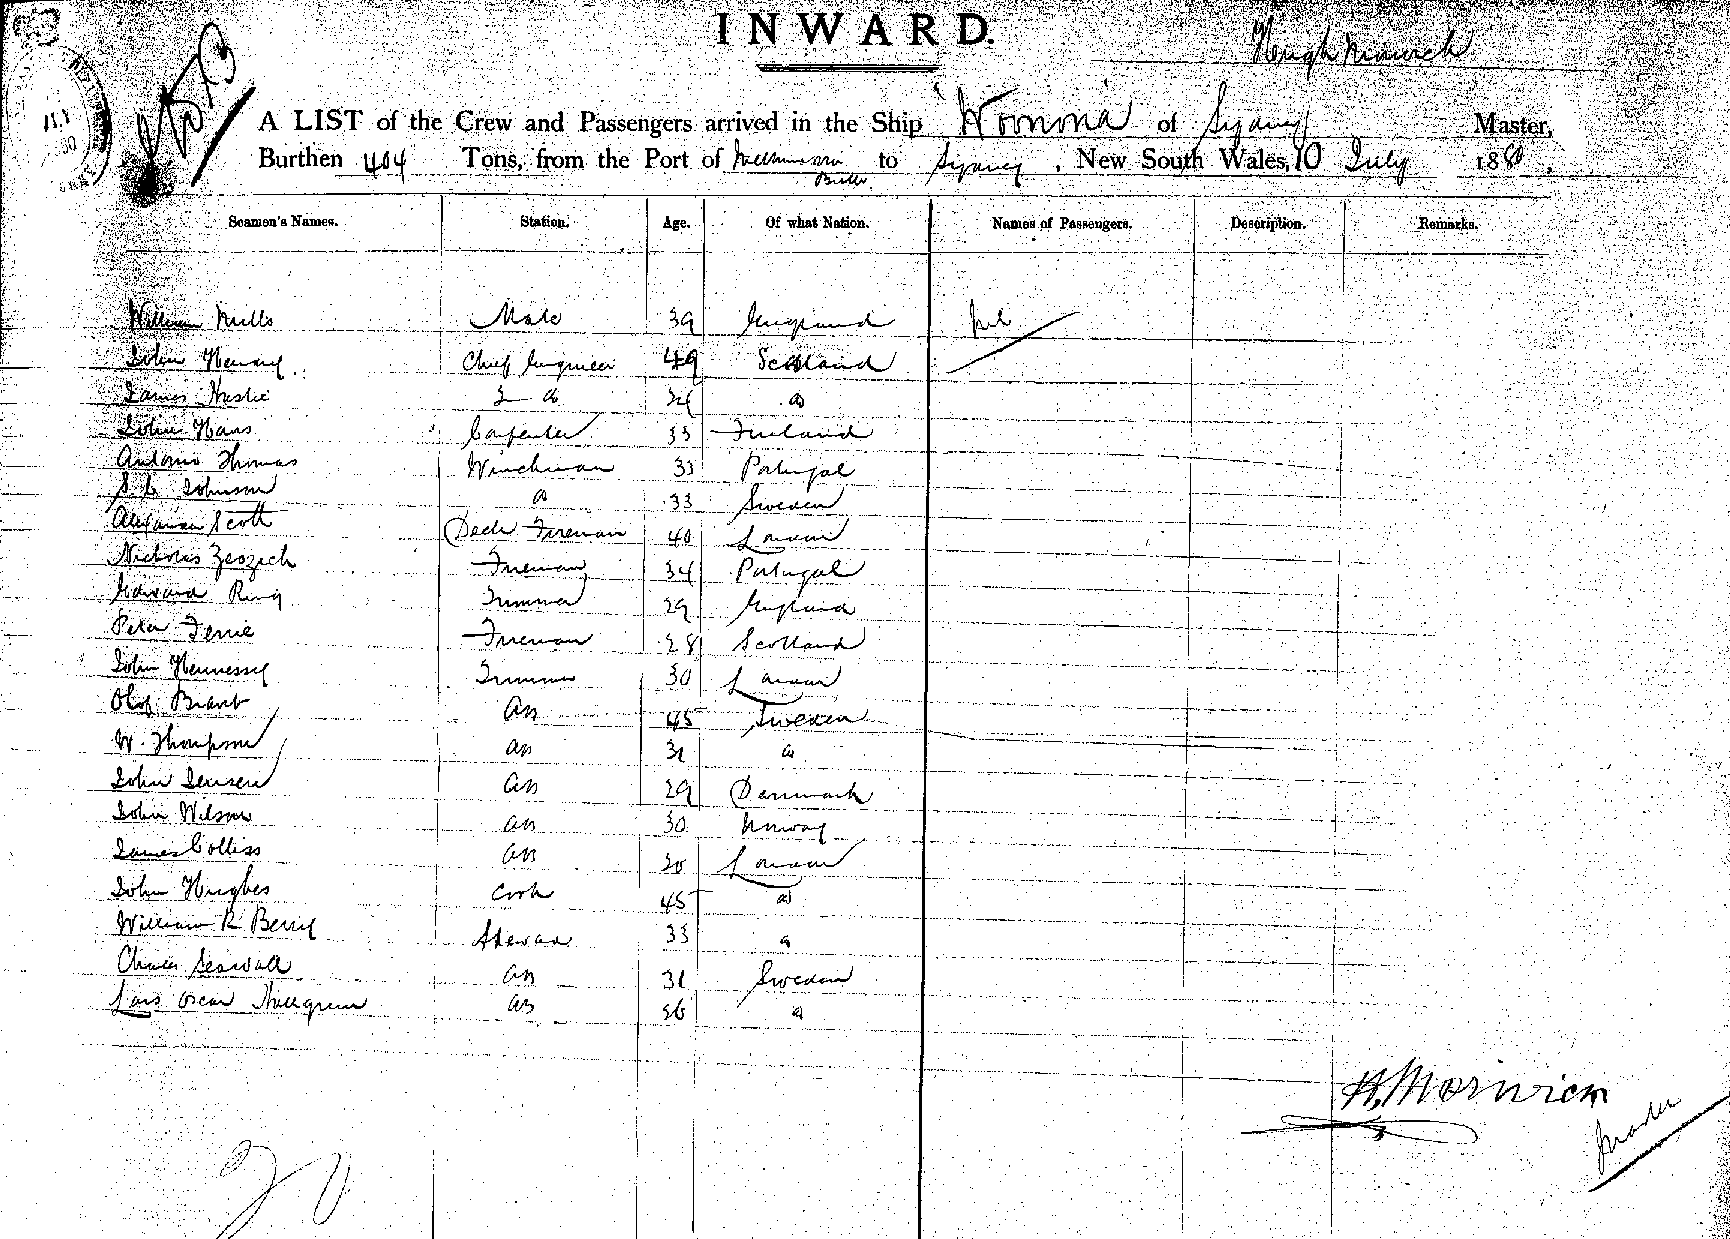 INWARD.
Hugh Morwick
A LIST of the Crew and Passengers arrived in the Ship "Woonona" of Sydney Master,
Burthen 404 Tons, from the Port of to Sydney, New South Wales, 10 July 1880.
Seamen's Names. Station. Age. Of what Nation. Names of Passengers. Description. Remarks.
William Mills Mate 39 England Nil
John Henry Chief Engineer 49 Scotland
James 2 do do
John Haas Carpenter 33 Finland
Antonio Thomas Winchman 33 Portugal
Johnson do 33 Sweden
Alexander Scott Deck Fireman 40 London
Nicholas Zeszich Fireman 34 Portugal
Edward Ring Trimmer 29 England
Peter Ferrie Fireman 28 Scotland
John Hennessy Trimmer 30 London
Olof Brant AB 45 Sweden
W. Thompson AB do
John Jensen AB 29 Denmark
John Wilson AB 30 Norway
James Colliss AB 30 London
John Hughes Cook 45 do
William R Berry Steward 33 do
Charles Seawall AB 31 Sweden
Lars Oscar Hallgren AB do
H. Morwick
Master